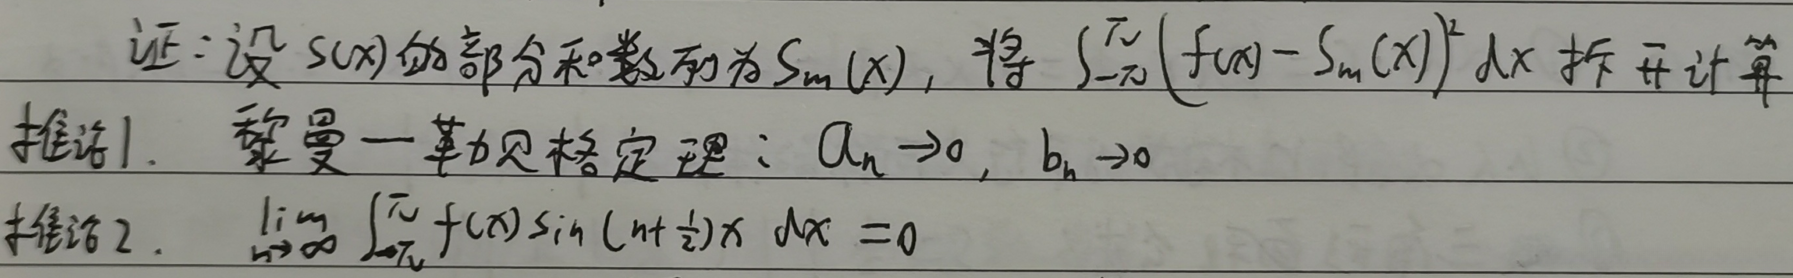 证：设 S(x) 的部分和数列为 Sₘ(x)，将 ∫_{-π}^{π} (f(x) - Sₘ(x))² dx 拆开计算
推论1. 黎曼—勒贝格定理：aₙ→0, bₙ→0
推论2. lim_{n→∞} ∫_{-π}^{π} f(x) sin(n+½)x dx = 0